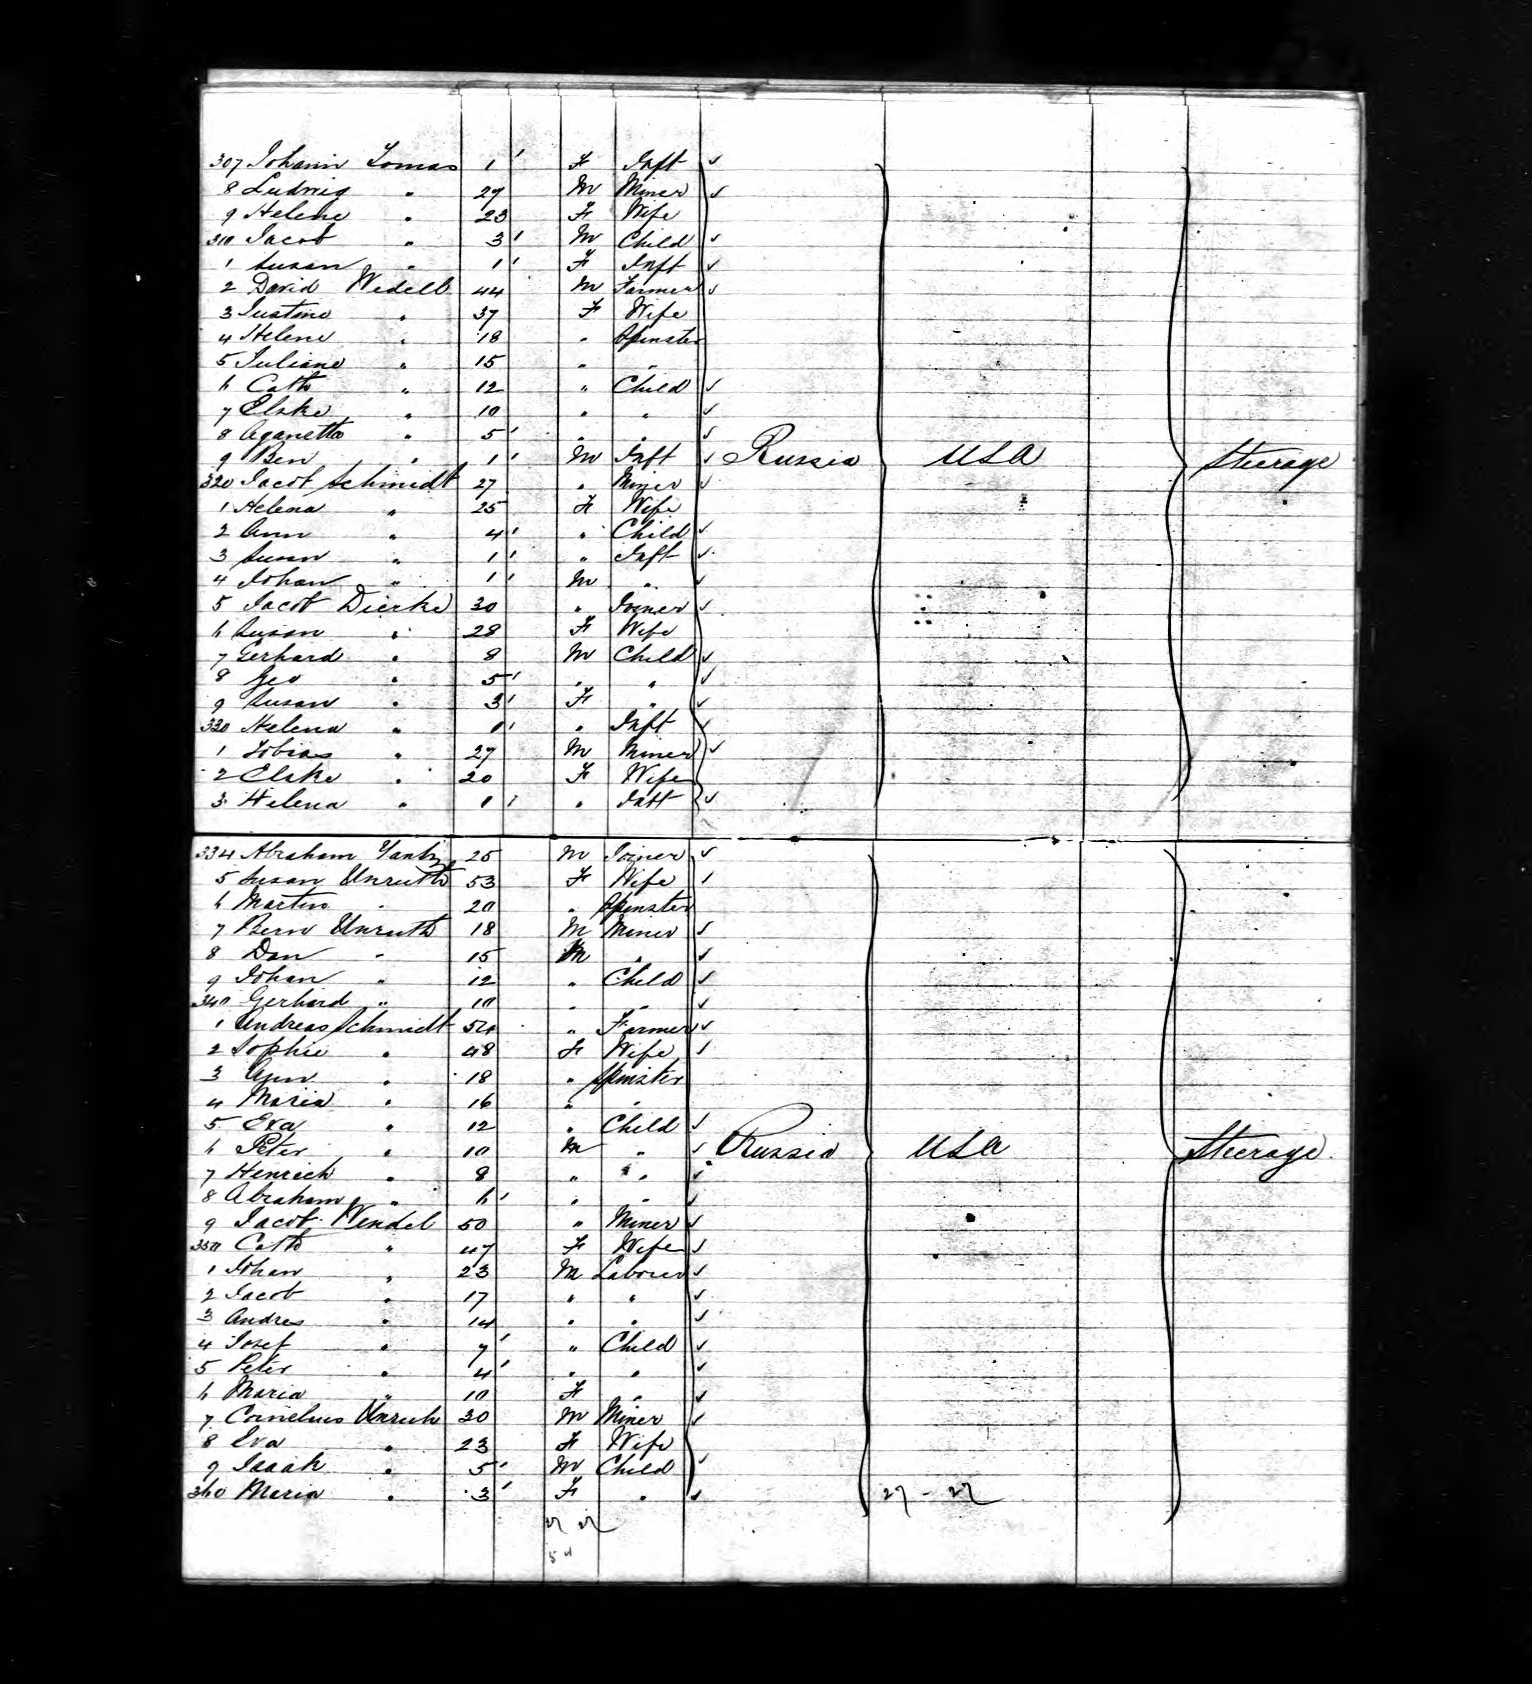 307 Johann Tomas 1 ' F Inft ✓
8 Ludwig " 27 M Miner ✓
9 Helene " 23 F Wife
310 Jacob " 3 ' M Child ✓
1 Susan " 1 ' F Inft ✓
2 David Wedell 44 M Farmer ✓
3 Justine " 37 F Wife
4 Helene " 18 " Spinster
5 Juliane " 15 " "
6 Cath " 12 " Child ✓
7 Elske " 10 " " ✓
8 Aganetha " 5 ' " " ✓
9 Ben " 1 ' M Inft ✓ Russia USA Steerage
320 Jacob Schmidt 27 " Miner ✓
1 Helena " 25 F Wife
2 Ann " 4 ' " Child ✓
3 Susan " 1 ' " Inft ✓
4 Johan " 1 ' M " ✓
5 Jacob Dierke 30 " Joiner ✓
6 Susan " 28 F Wife
7 Gerhard " 8 M Child ✓
8 Geo " 5 ' " " ✓
9 Susan " 3 ' F " ✓
330 Helena " 1 ' " Inft ✓
1 Tobias " 27 M Miner ✓
2 Elske " 20 F Wife
3 Helena " 1 ' " Inft ✓
334 Abraham 25 M Joiner ✓
5 Susan Unruth 53 F Wife ✓
6 Martin " 20 " Spinster
7 Bern Unruth 18 M Miner ✓
8 Dan " 15 M " ✓
9 Johan " 12 " Child ✓
340 Gerhard " 10 " " ✓
1 Andreas Schmidt 54 " Farmer ✓
2 Sophie " 48 F Wife ✓
3 " 18 " Spinster
4 Maria " 16 " "
5 Eva " 12 " Child ✓
6 Peter " 10 M " ✓ Russia USA Steerage
7 Henrich " 8 " " ✓
8 Abraham " 6 ' " " ✓
9 Jacob Wendel 50 " Miner ✓
350 Cath " 47 F Wife ✓
1 Johan " 23 M Laborer ✓
2 Jacob " 17 " " ✓
3 Andres " 14 " " ✓
4 Josef " 7 ' " Child ✓
5 Peter " 4 ' " " ✓
6 Maria " 10 F " ✓
7 Cornelius Unruh 30 M Miner ✓
8 Eva " 23 F Wife
9 Isaak " 5 ' M Child ✓
360 Maria " 3 ' F " ✓ 27 - 27
27 27
54